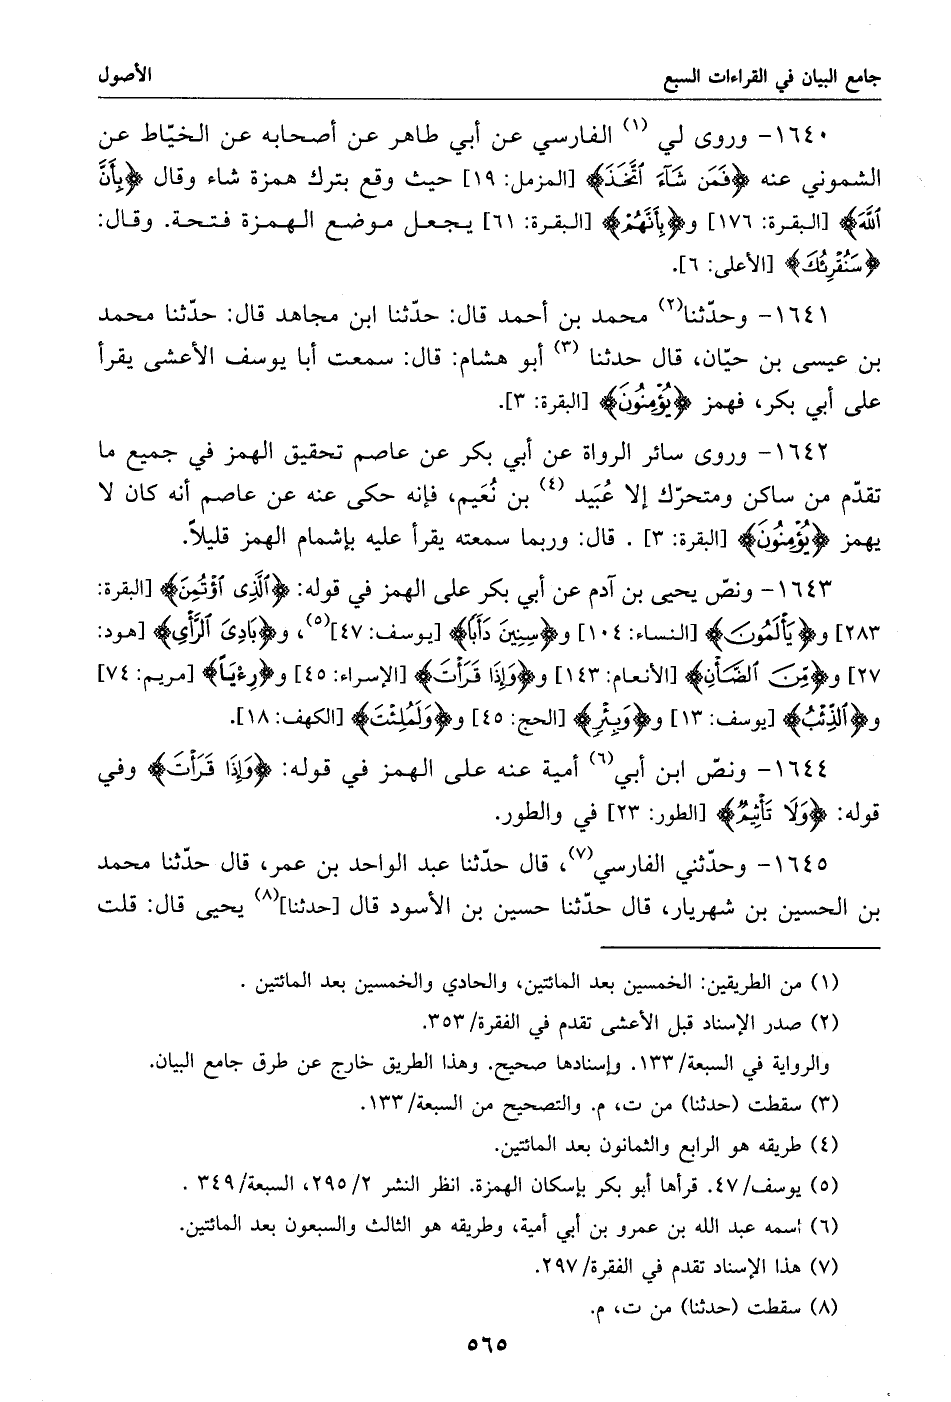 جامع البيان في القراءات السبع الأصول
١٦٤٠- وروى لي (١) الفارسي عن أبي طاهر عن أصحابه عن الخيّاط عن
الشموني عنه ﴿فَمَن شَآءَ ٱتَّخَذَ﴾ [المزمل: ١٩] حيث وقع بترك همزة شاء وقال ﴿بِأَنَّ
ٱللَّهَ﴾ [البقرة: ١٧٦] و﴿بِأَنَّهُمْ﴾ [البقرة: ٦١] يجعل موضع الهمزة فتحة. وقال:
﴿سَنُقْرِئُكَ﴾ [الأعلى: ٦].
١٦٤١- وحدّثنا(٢) محمد بن أحمد قال: حدّثنا ابن مجاهد قال: حدّثنا محمد
بن عيسى بن حيّان، قال حدثنا (٣) أبو هشام: قال: سمعت أبا يوسف الأعشى يقرأ
على أبي بكر، فهمز ﴿يُؤْمِنُونَ﴾ [البقرة: ٣].
١٦٤٢- وروى سائر الرواة عن أبي بكر عن عاصم تحقيق الهمز في جميع ما
تقدّم من ساكن ومتحرّك إلا عُبَيد (٤) بن نُعَيم، فإنه حكى عنه عن عاصم أنه كان لا
يهمز ﴿يُؤْمِنُونَ﴾ [البقرة: ٣] . قال: وربما سمعته يقرأ عليه بإشمام الهمز قليلاً.
١٦٤٣- ونصّ يحيى بن آدم عن أبي بكر على الهمز في قوله: ﴿ٱلَّذِى ٱؤْتُمِنَ﴾ [البقرة:
٢٨٣] و﴿يَأْلَمُونَ﴾ [النساء: ١٠٤] و﴿سِنِينَ دَأْبًا﴾ [يوسف: ٤٧](٥)، و﴿بَادِىَ ٱلرَّأْيِ﴾ [هود:
٢٧] و﴿مِّنَ ٱلضَّأْنِ﴾ [الأنعام: ١٤٣] و﴿وَإِذَا قَرَأْتَ﴾ [الإسراء: ٤٥] و﴿رِءْيَاً﴾ [مريم: ٧٤]
و﴿ٱلذِّئْبُ﴾ [يوسف: ١٣] و﴿وَبِئْرٍ﴾ [الحج: ٤٥] و﴿وَلَمُلِئْتَ﴾ [الكهف: ١٨].
١٦٤٤- ونصّ ابن أبي(٦) أمية عنه على الهمز في قوله: ﴿وَإِذَا قَرَأْتَ﴾ وفي
قوله: ﴿وَلَا تَأْثِيمٌ﴾ [الطور: ٢٣] في والطور.
١٦٤٥- وحدّثني الفارسي(٧)، قال حدّثنا عبد الواحد بن عمر، قال حدّثنا محمد
بن الحسين بن شهريار، قال حدّثنا حسين بن الأسود قال [حدثنا](٨) يحيى قال: قلت
(١) من الطريقين: الخمسين بعد المائتين، والحادي والخمسين بعد المائتين .
(٢) صدر الإسناد قبل الأعشى تقدم في الفقرة/ ٣٥٣.
والرواية في السبعة/ ١٣٣. وإسنادها صحيح. وهذا الطريق خارج عن طرق جامع البيان.
(٣) سقطت (حدثنا) من ت، م. والتصحيح من السبعة/ ١٣٣.
(٤) طريقه هو الرابع والثمانون بعد المائتين.
(٥) يوسف/ ٤٧. قرأها أبو بكر بإسكان الهمزة. انظر النشر ٢/ ٢٩٥، السبعة/ ٣٤٩ .
(٦) اسمه عبد الله بن عمرو بن أبي أمية، وطريقه هو الثالث والسبعون بعد المائتين.
(٧) هذا الإسناد تقدم في الفقرة/ ٢٩٧.
(٨) سقطت (حدثنا) من ت، م.
٥٦٥